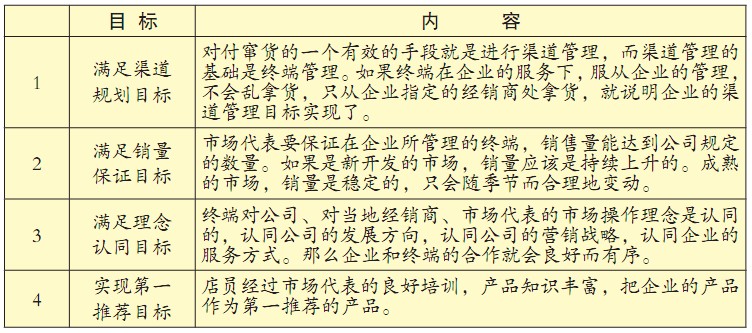 目 标 内 容
对付窜货的一个有效的手段就是进行渠道管理，而渠道管理的
1 满足渠道 基础是终端管理。如果终端在企业的服务下，服从企业的管理，
规划目标 不会乱拿货，只从企业指定的经销商处拿货，就说明企业的渠
道管理目标实现了。
市场代表要保证在企业所管理的终端，销售量能达到公司规定
2 满足销量 的数量。如果是新开发的市场，销量应该是持续上升的。成熟
保证目标 的市场，销量是稳定的，只会随季节而合理地变动。
终端对公司、对当地经销商、市场代表的市场操作理念是认同
3 满足理念 的，认同公司的发展方向，认同公司的营销战略，认同企业的
认同目标 服务方式。那么企业和终端的合作就会良好而有序。
4 实现第一 店员经过市场代表的良好培训，产品知识丰富，把企业的产品
推荐目标 作为第一推荐的产品。